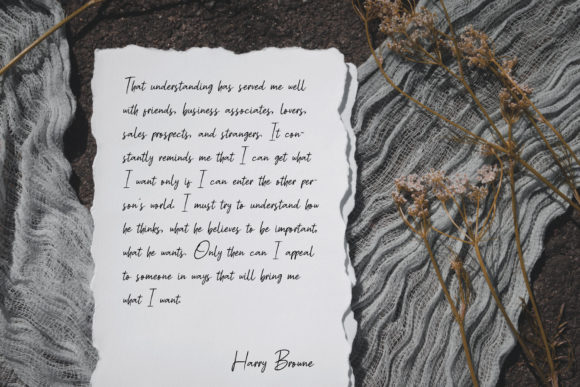 That understanding has served me well
with friends, business associates, lovers,
sales prospects, and strangers. It con-
stantly reminds me that I can get what
I want only if I can enter the other per-
son's world. I must try to understand how
he thinks, what he believes to be important,
what he wants. Only then can I appeal
to someone in ways that will bring me
what I want.
Harry Browne